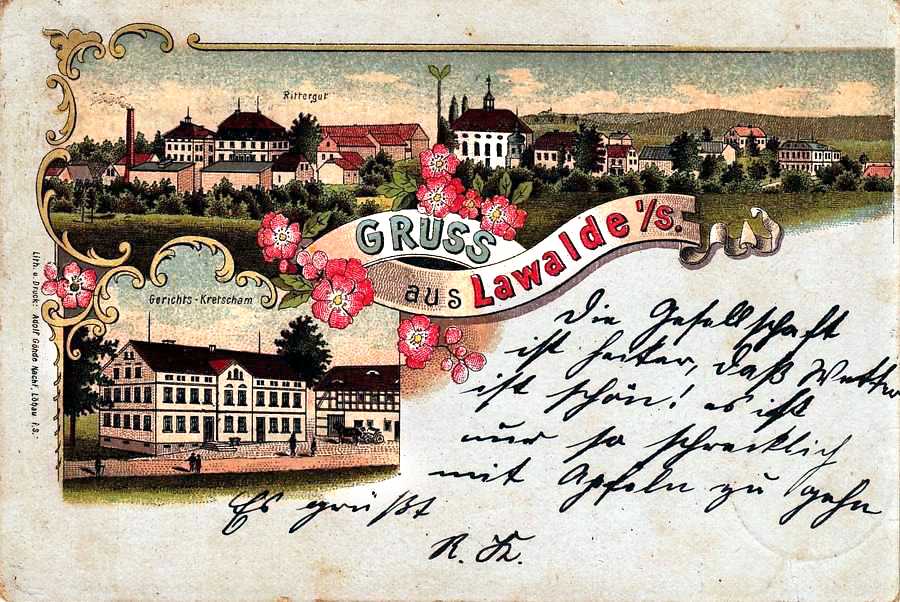 Rittergut
GRUSS
aus Lawalde i/S.
Gerichts-Kretscham
Lith. u. Druck: Adolf Gönde Nachf. Löbau i. S.
Die Gesellschaft
ist heiter, daß Wetter
ist schön! es ist
nur so schrecklich
mit Apfeln zu gehn
Es grüßt
R.